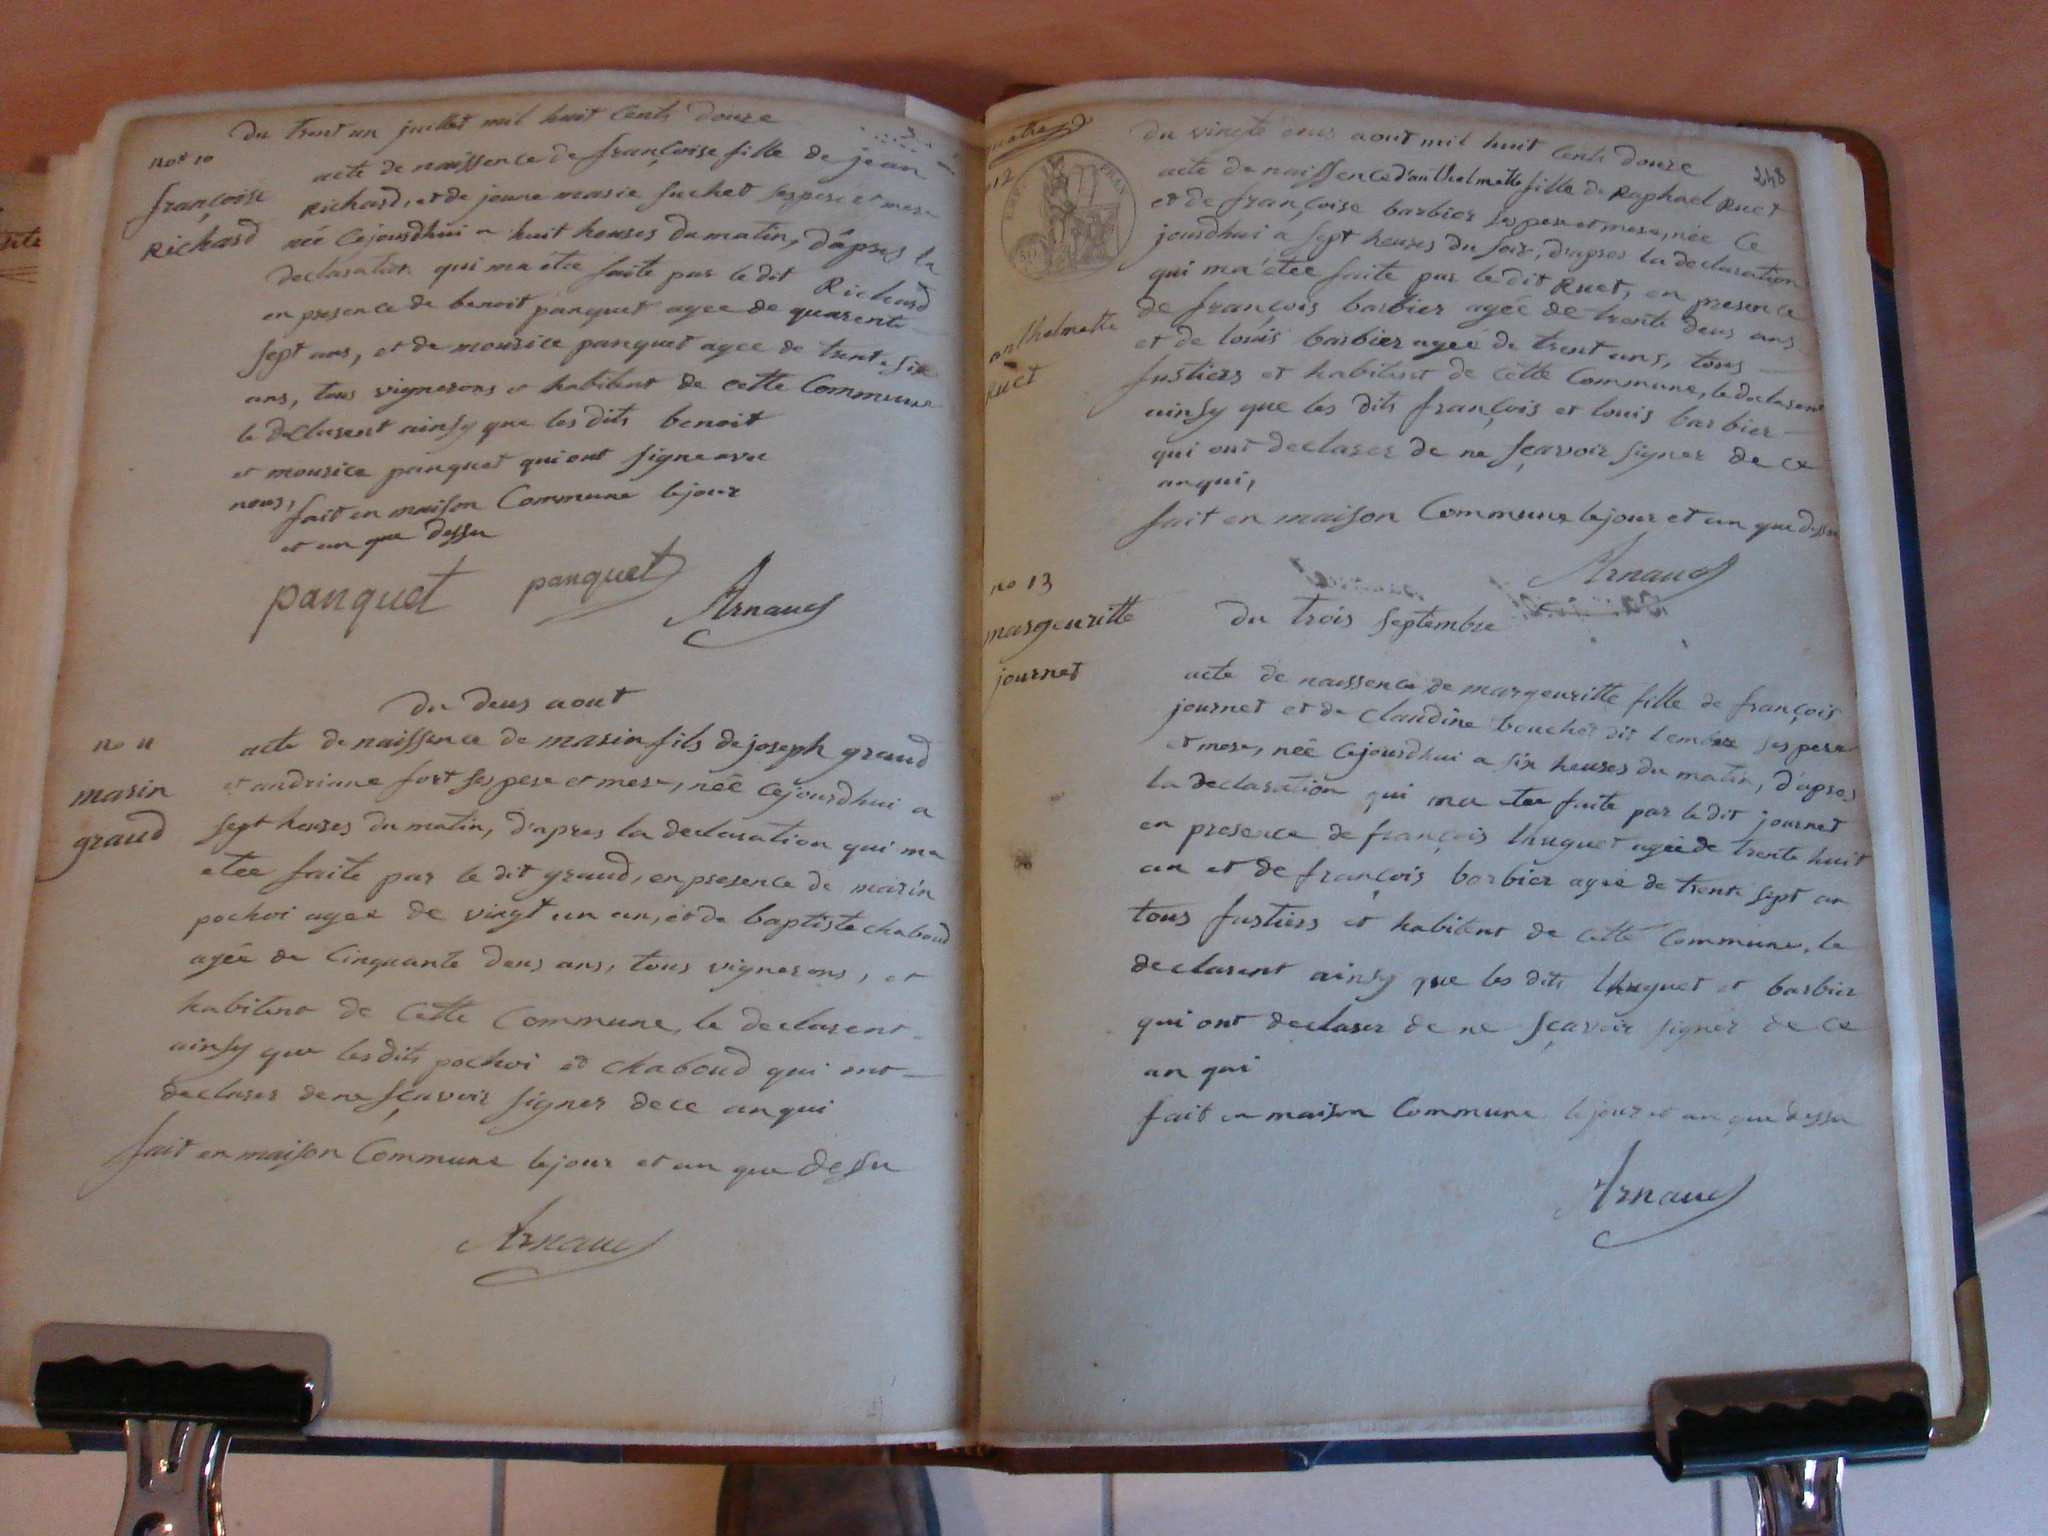 du trent un juillet mil huit Cents douze
no 10
françoise
Richard
acte de naissence de françoise fille de jean
Richard, et de jeune marie suchet ses pere et mere
née Cejourdhui a huit heures du matin, d'apres la
declaration qui ma étée faite par le dit Richard
en presence de benoit panquet agee de quarente
sept ans, et de mourice panquet agee de trente six
ans, tous vignerons et habitent de cette Commune
le declarent ainsy que les dits benoit
et mourice panquet qui ont signe avec
nous,
fait en maison Commune le jour
et an que dessu
panquet panquet Arnaud
du deus aout
no 11
marin
graud
acte de naissence de marin fils de joseph graud
et andriane fort ses pere et mere, née Cejourdhui a
sept heures du matin, d'apres la declaration qui ma
etee faite par le dit graud, en presence de marin
pochoi agee de vingt un an, et de baptiste chaboud
agée de Cinquante deus ans, tous vignerons, et
habitent de Cette Commune, le declarent
ainsy que les dits pochoi et chaboud qui ont
declarer de ne sçavoir signer de ce anqui
fait en maison Commune le jour et an que dessu
Arnaud
248
du vingte deus aout mil huit Cents douze
12
anthelmette
Ruet
acte de naissence d'anthelmette fille de Raphael Ruet
et de françoise barbier ses pere et mere, née Ce
jourdhui a sept heures du soir, d'apres la declaration
qui ma étee faite par le dit Ruet, en presence
de françois barbier agée de trente deus ans
et de louis barbier agée de trent ans, tous
fustiers et habitent de Cette Commune, le declarent
ainsy que les dits françois et louis barbier
qui ont declarer de ne sçavoir signer de ce
anqui,
fait en maison Commune le jour et an que dessu
Arnaud
no 13
margeuritte
journet
du trois septembre
acte de naissence de margeuritte fille de françois
journet et de Claudine bouchet dit ses pere
et mere, née Cejourdhui a six heures du matin, d'apres
la declaration qui ma etee faite par le dit journet
en presence de françois lhuguet agée de trente huit
an et de françois barbier agée de trente sept an
tous fustiers et habitent de cette Commune, le
declarent ainsy que les dits lhuguet et barbier
qui ont declarer de ne sçavoir signer de ce
an qui
fait en maison Commune le jour et an que dessu
Arnaud